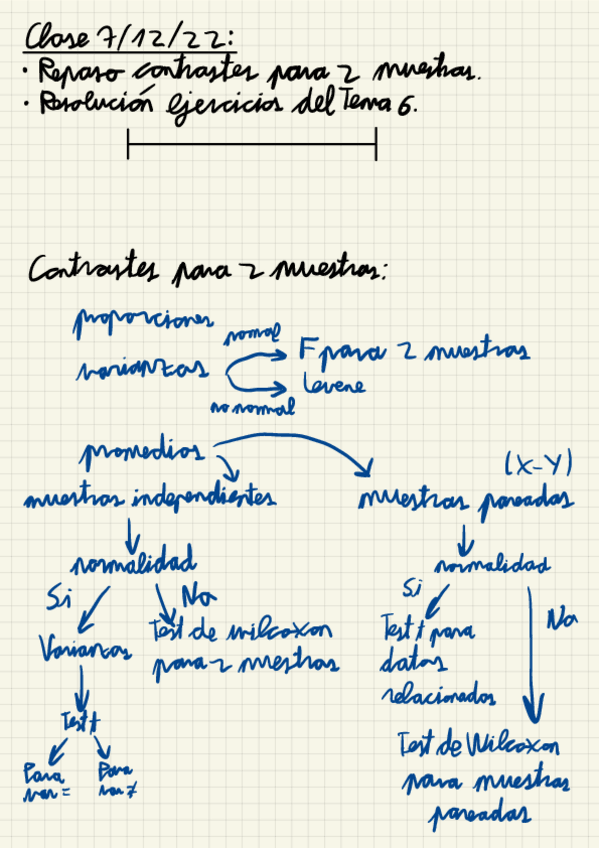 Clase 7/12/22:
· Repaso contrastes para 2 muestras.
· Resolución ejercicios del Tema 6.
Contrastes para 2 muestras:
proporciones
normal
varianzas
F para 2 muestras
Levene
no normal
promedios
(X-Y)
muestras independientes
muestras pareadas
normalidad
normalidad
Si
No
Si
No
Varianzas
Test de wilcoxon
para 2 mestras
Test t para
datos
relacionados
Test t
Para
var =
Para
var ≠
Test de Wilcoxon
para muestras
pareadas